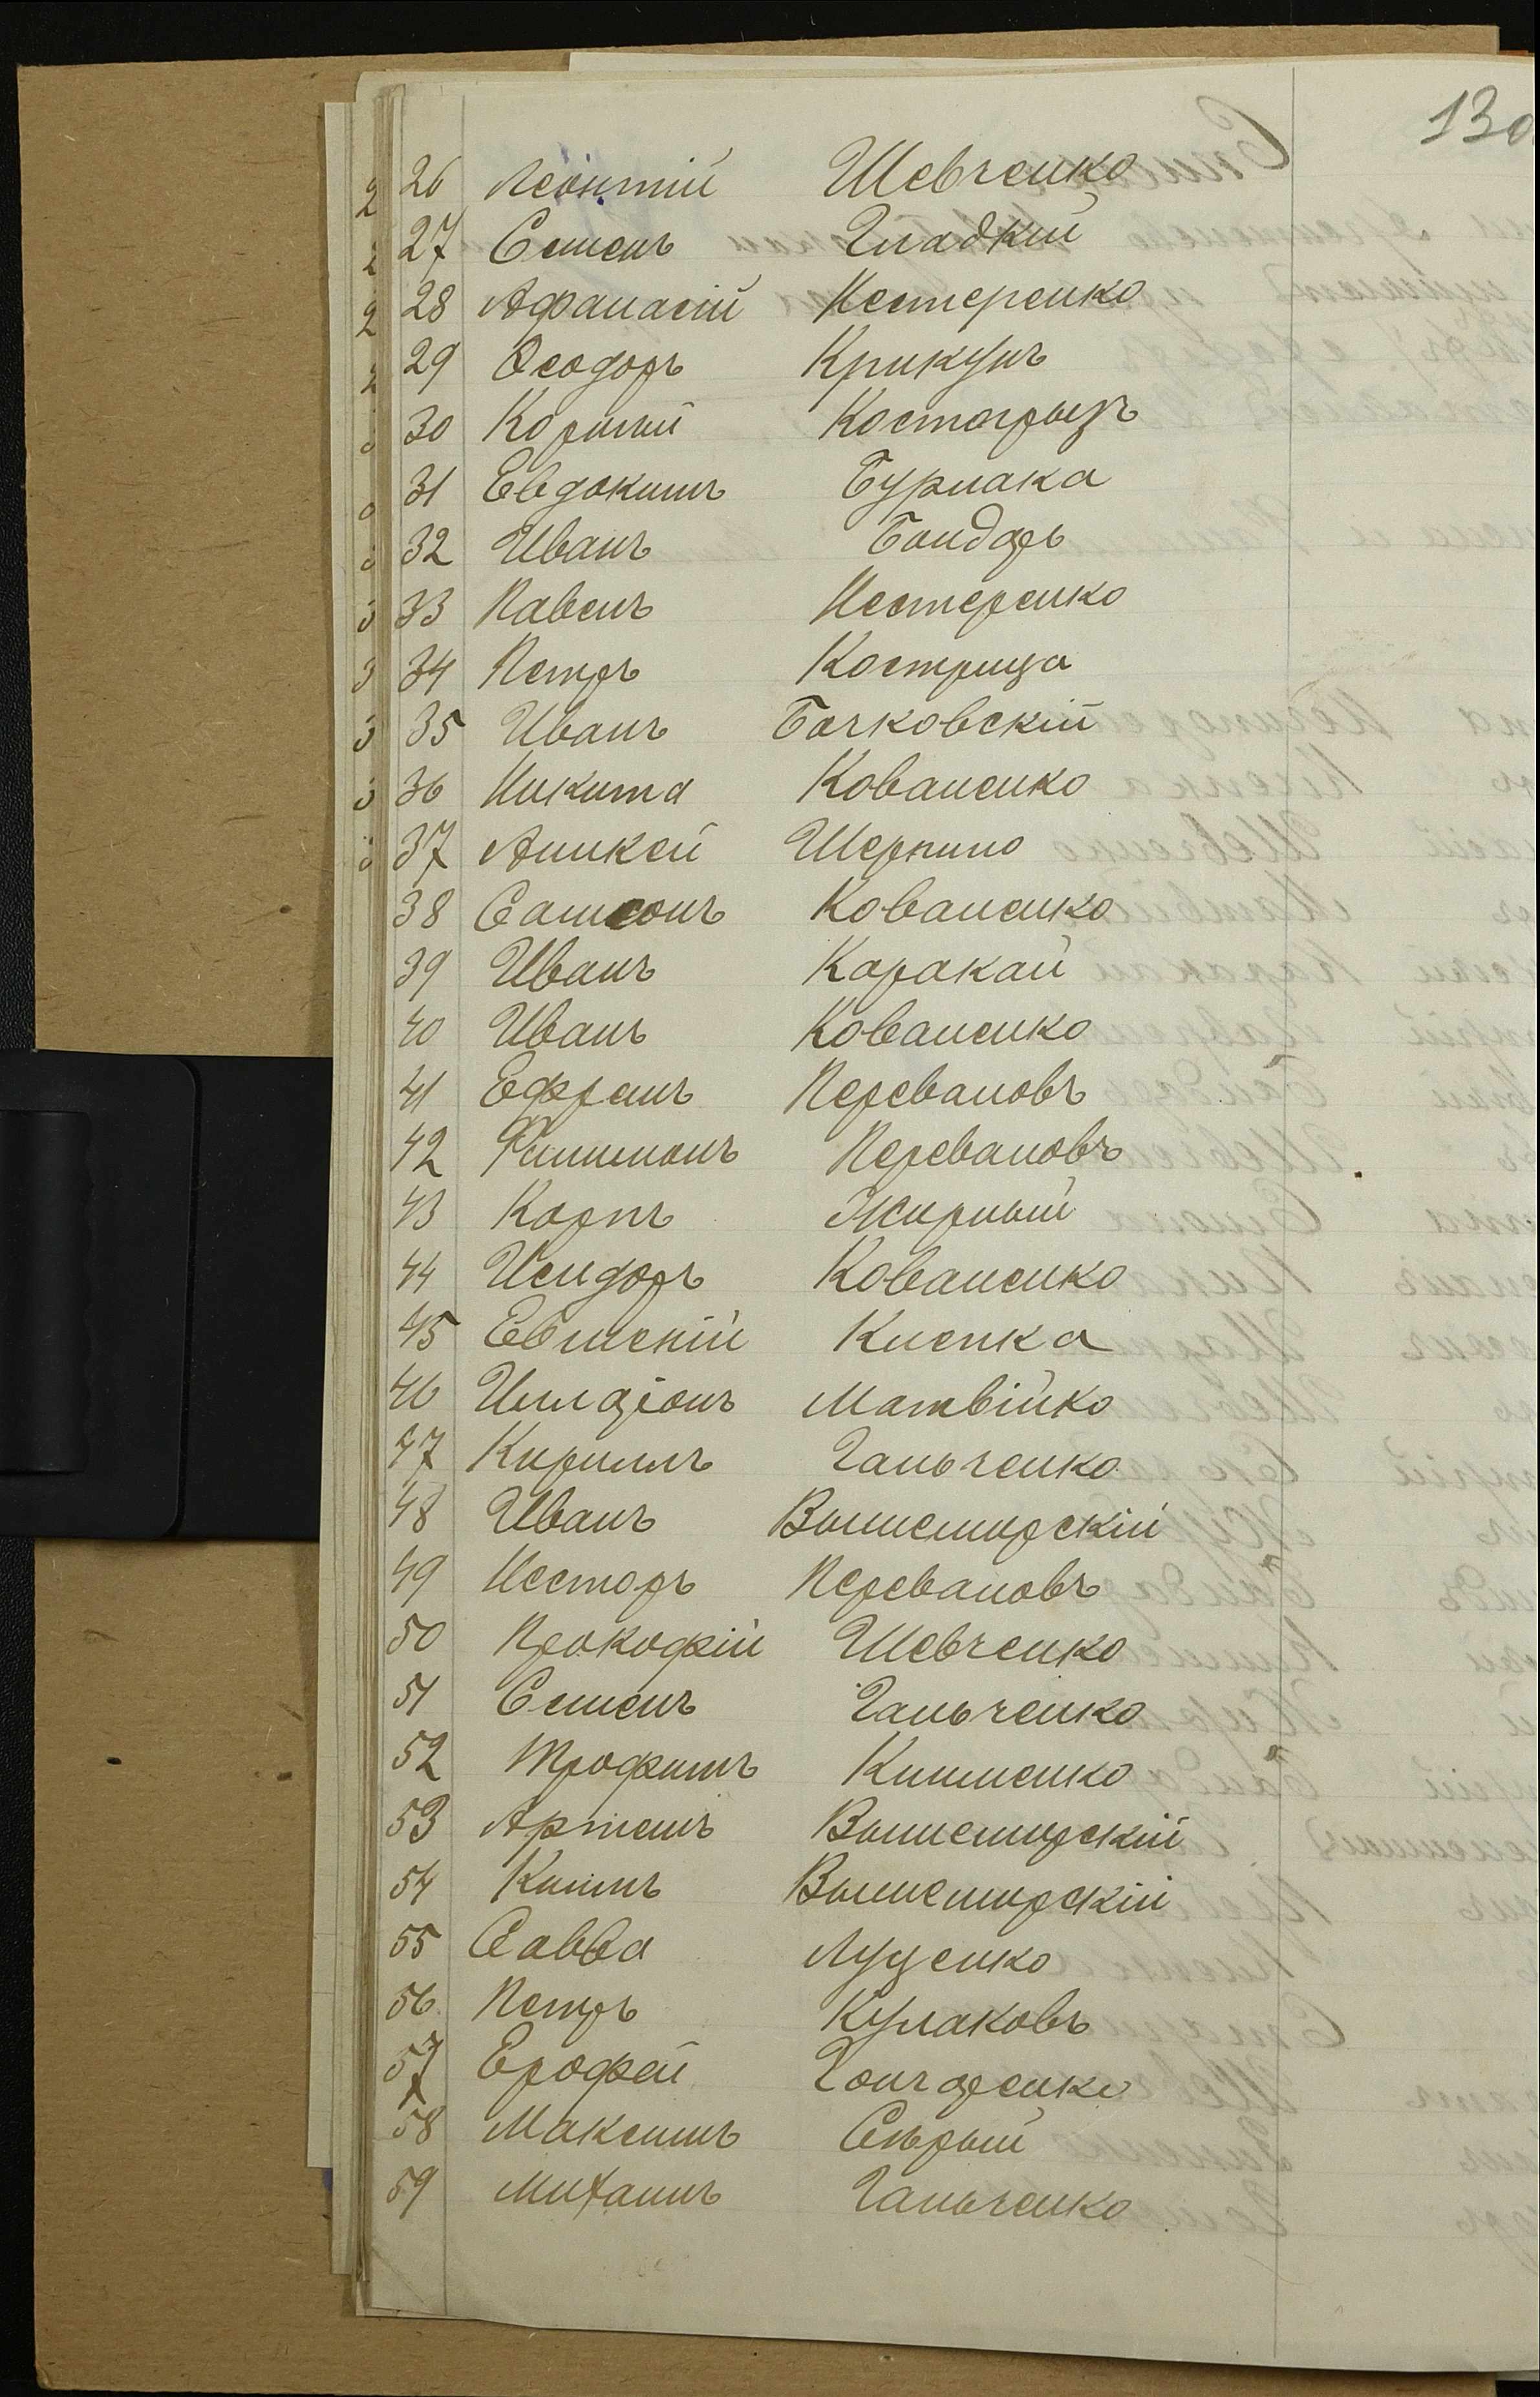 130
26 Леонтій Шевченко
27 Семенъ Гладкій
28 Афанасій Нестеренко
29 Ѳеодоръ Крикунъ
30 Корнилій Костогрызъ
31 Евдокимъ Бурлака
32 Иванъ Бондарь
33 Павелъ Нестеренко
34 Петръ Кострица
35 Иванъ Бачковскій
36 Никита Коваленко
37 Аникей
38 Самсонъ Коваленко
39 Иванъ Каракай
40 Иванъ Коваленко
41 Ефремъ Переваловъ
42 Филимонъ Переваловъ
43 Карпъ Жирный
44 Исидоръ Коваленко
45 Евменій Клепка
46 Иларіонъ Матвійко
47 Кириллъ Гальченко
48 Иванъ Вышемирскій
49 Несторъ Переваловъ
50 Прокофій Шевченко
51 Семенъ Гальченко
52 Трофимъ Клименко
53 Артемъ Вышемирскій
54 Климъ Вышемирскій
55 Савва Луценко
56 Петръ Кулаковъ
57 Ерофей Гончаренко
58 Максимъ Сѣрый
59 Михаилъ Гальченко